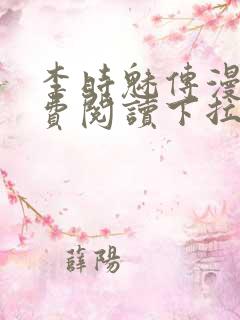 李時魅傳漫
費閱讀下拉
薛陽